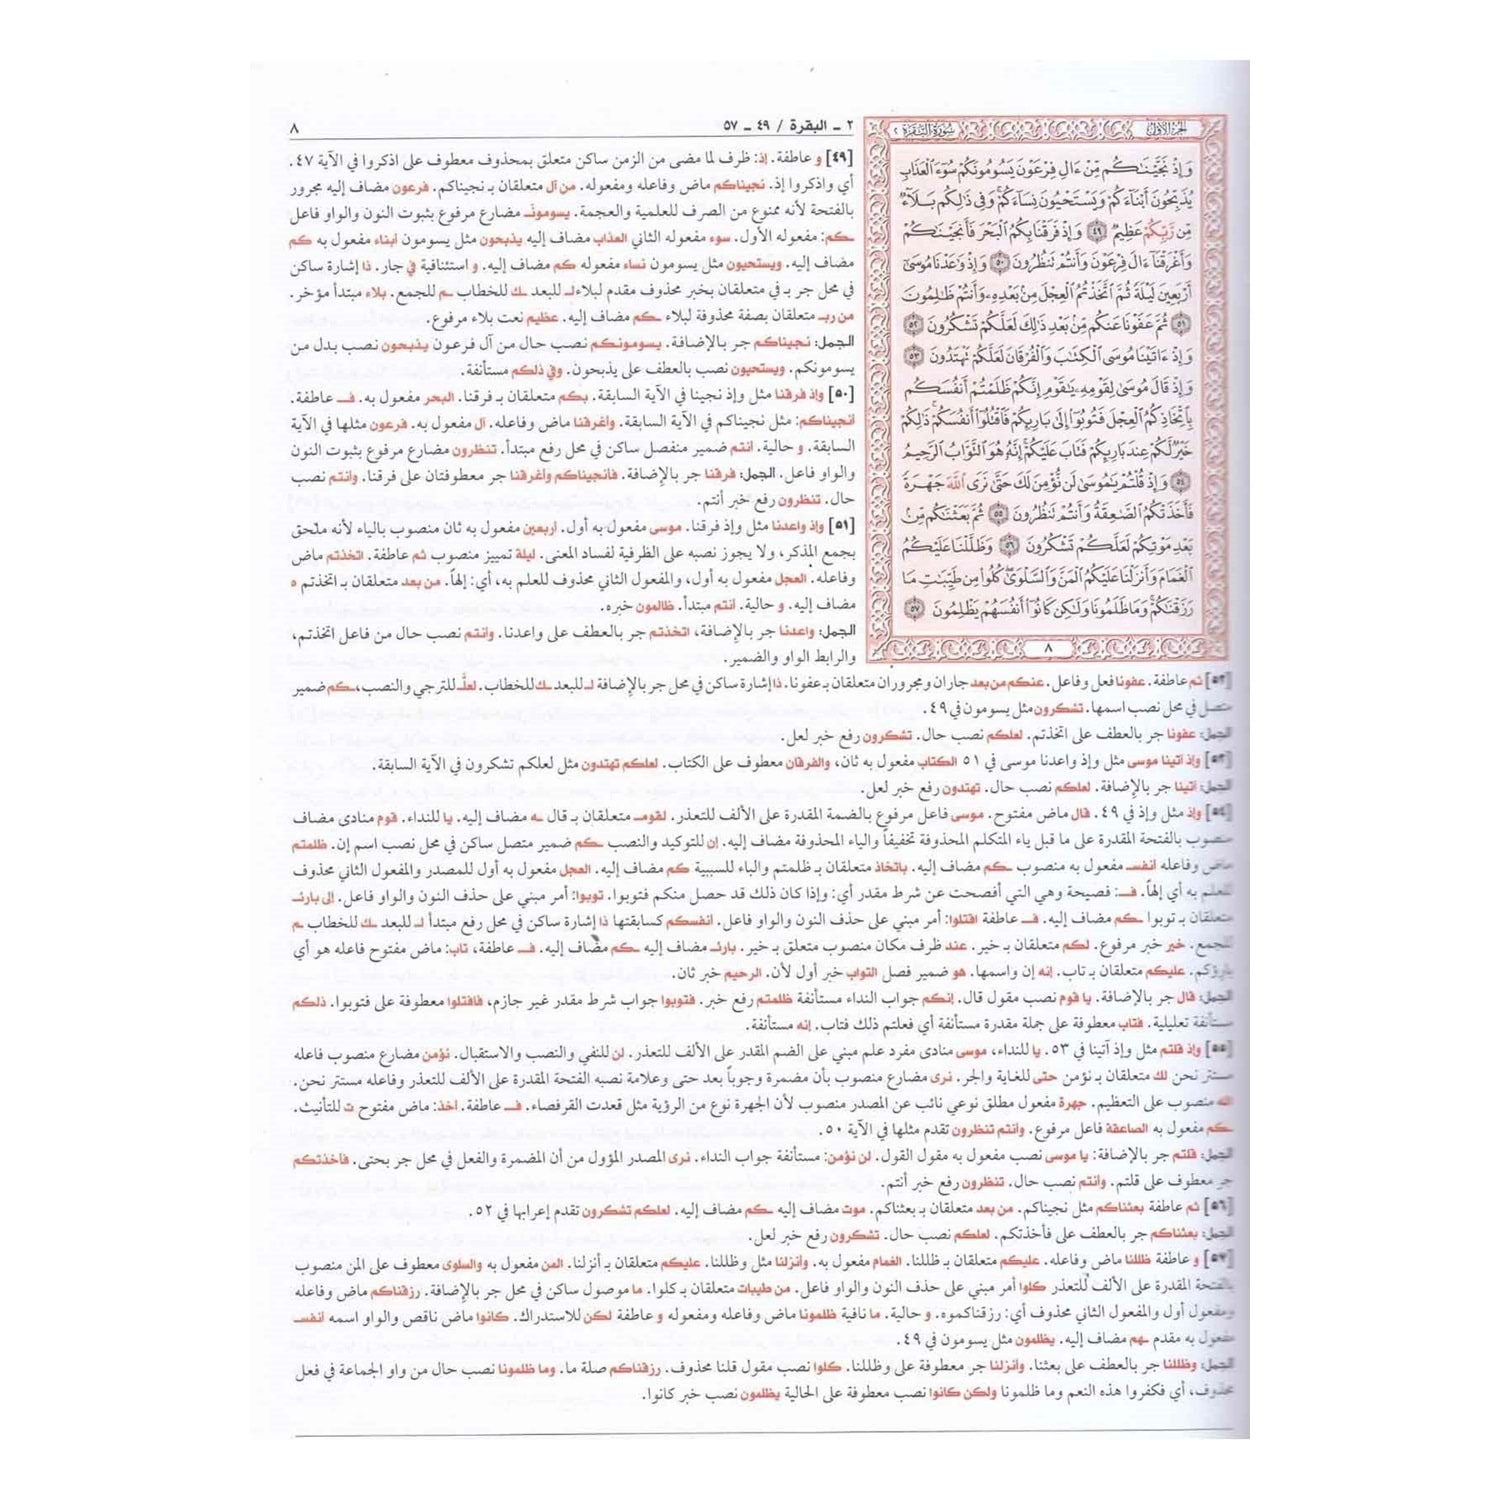 ٢ ـ البقرة / ٤٩ ـ ٥٧
٨
الجزء الأول
سورة البقرة ٢
وَإِذْ نَجَّيْنَٰكُم مِّنْ ءَالِ فِرْعَوْنَ يَسُومُونَكُمْ سُوٓءَ ٱلْعَذَابِ
يُذَبِّحُونَ أَبْنَآءَكُمْ وَيَسْتَحْيُونَ نِسَآءَكُمْ وَفِى ذَٰلِكُم بَلَآءٌ
مِّن رَّبِّكُمْ عَظِيمٌ ٤٩ وَإِذْ فَرَقْنَا بِكُمُ ٱلْبَحْرَ فَأَنجَيْنَٰكُمْ
وَأَغْرَقْنَآ ءَالَ فِرْعَوْنَ وَأَنتُمْ تَنظُرُونَ ٥٠ وَإِذْ وَٰعَدْنَا مُوسَىٰٓ
أَرْبَعِينَ لَيْلَةً ثُمَّ ٱتَّخَذْتُمُ ٱلْعِجْلَ مِنۢ بَعْدِهِۦ وَأَنتُمْ ظَٰلِمُونَ
٥١ ثُمَّ عَفَوْنَا عَنكُم مِّنۢ بَعْدِ ذَٰلِكَ لَعَلَّكُمْ تَشْكُرُونَ ٥٢
وَإِذْ ءَاتَيْنَا مُوسَى ٱلْكِتَٰبَ وَٱلْفُرْقَانَ لَعَلَّكُمْ تَهْتَدُونَ ٥٣
وَإِذْ قَالَ مُوسَىٰ لِقَوْمِهِۦ يَٰقَوْمِ إِنَّكُمْ ظَلَمْتُمْ أَنفُسَكُم
بِٱتِّخَاذِكُمُ ٱلْعِجْلَ فَتُوبُوٓا۟ إِلَىٰ بَارِئِكُمْ فَٱقْتُلُوٓا۟ أَنفُسَكُمْ ذَٰلِكُمْ
خَيْرٌ لَّكُمْ عِندَ بَارِئِكُمْ فَتَابَ عَلَيْكُمْ إِنَّهُۥ هُوَ ٱلتَّوَّابُ ٱلرَّحِيمُ
٥٤ وَإِذْ قُلْتُمْ يَٰمُوسَىٰ لَن نُّؤْمِنَ لَكَ حَتَّىٰ نَرَى ٱللَّهَ جَهْرَةً
فَأَخَذَتْكُمُ ٱلصَّٰعِقَةُ وَأَنتُمْ تَنظُرُونَ ٥٥ ثُمَّ بَعَثْنَٰكُم مِّنۢ
بَعْدِ مَوْتِكُمْ لَعَلَّكُمْ تَشْكُرُونَ ٥٦ وَظَلَّلْنَا عَلَيْكُمُ
ٱلْغَمَامَ وَأَنزَلْنَا عَلَيْكُمُ ٱلْمَنَّ وَٱلسَّلْوَىٰ كُلُوا۟ مِن طَيِّبَٰتِ مَا
رَزَقْنَٰكُمْ وَمَا ظَلَمُونَا وَلَٰكِن كَانُوٓا۟ أَنفُسَهُمْ يَظْلِمُونَ ٥٧
٨
[٤٩] و عاطفة. إذ: ظرف لما مضى من الزمن ساكن متعلق بمحذوف معطوف على اذكروا في الآية ٤٧.
أي واذكروا إذ. نجيناكم ماض وفاعله ومفعوله. من آل متعلقان بـ نجيناكم. فرعون مضاف إليه مجرور
بالفتحة لأنه ممنوع من الصرف للعلمية والعجمة. يسومونـ مضارع مرفوع بثبوت النون والواو فاعل
ـكم: مفعوله الأول. سوء مفعوله الثاني العذاب مضاف إليه يذبحون مثل يسومون أبناء مفعول به كم
مضاف إليه. ويستحيون مثل يسومون نساء مفعوله كم مضاف إليه. و استئنافية في جار. ذا إشارة ساكن
في محل جر بـ في متعلقان بخبر محذوف مقدم لبلاء لـ للبعد ـك للخطاب ـم للجمع. بلاء مبتدأ مؤخر.
من ربـ متعلقان بصفة محذوفة لبلاء ـكم مضاف إليه. عظيم نعت بلاء مرفوع.
الجمل: نجيناكم جر بالإضافة. يسومونكم نصب حال من آل فرعون يذبحون نصب بدل من
يسومونكم. ويستحيون نصب بالعطف على يذبحون. وفي ذلكم مستأنفة.
[٥٠] وإذ فرقنا مثل وإذ نجينا في الآية السابقة. بكم متعلقان بـ فرقنا. البحر مفعول به. فـ عاطفة.
أنجيناكم: مثل نجيناكم في الآية السابقة. وأغرقنا ماض وفاعله. آل مفعول به. فرعون مثلها في الآية
السابقة. و حالية. أنتم ضمير منفصل ساكن في محل رفع مبتدأ. تنظرون مضارع مرفوع بثبوت النون
والواو فاعل. الجمل: فرقنا جر بالإضافة. فأنجيناكم وأغرقنا جر معطوفتان على فرقنا. وأنتم نصب
حال. تنظرون رفع خبر أنتم.
[٥١] وإذ واعدنا مثل وإذ فرقنا. موسى مفعول به أول. أربعين مفعول به ثان منصوب بالياء لأنه ملحق
بجمع المذكر، ولا يجوز نصبه على الظرفية لفساد المعنى. ليلة تمييز منصوب ثم عاطفة. اتخذتم ماض
وفاعله. العجل مفعول به أول، والمفعول الثاني محذوف للعلم به، أي: إلهاً. من بعد متعلقان بـ اتخذتم ه
مضاف إليه. و حالية. أنتم مبتدأ. ظالمون خبره.
الجمل: واعدنا جر بالإضافة، اتخذتم جر بالعطف على واعدنا. وأنتم نصب حال من فاعل اتخذتم،
والرابط الواو والضمير.
[٥٢] ثم عاطفة. عفونا فعل وفاعل. عنكم من بعد جاران ومجروران متعلقان بـ عفونا. ذا إشارة ساكن في محل جر بالإضافة لـ للبعد ـك للخطاب. لعلّـ للترجي والنصب، ـكم ضمير
متصل في محل نصب اسمها. تشكرون مثل يسومون في ٤٩.
الجمل: عفونا جر بالعطف على اتخذتم. لعلكم نصب حال. تشكرون رفع خبر لعل.
[٥٣] وإذ آتينا موسى مثل وإذ واعدنا موسى في ٥١ الكتاب مفعول به ثان، والفرقان معطوف على الكتاب. لعلكم تهتدون مثل لعلكم تشكرون في الآية السابقة.
الجمل: آتينا جر بالإضافة. لعلكم نصب حال. تهتدون رفع خبر لعل.
[٥٤] وإذ مثل وإذ في ٤٩. قال ماض مفتوح. موسى فاعل مرفوع بالضمة المقدرة على الألف للتعذر. لقومـ متعلقان بـ قال ـه مضاف إليه. يا للنداء. قوم منادى مضاف
منصوب بالفتحة المقدرة على ما قبل ياء المتكلم المحذوفة تخفيفاً والياء المحذوفة مضاف إليه. إن للتوكيد والنصب ـكم ضمير متصل ساكن في محل نصب اسم إن. ظلمتم
ماض وفاعله أنفسـ مفعول به منصوب ـكم مضاف إليه. باتخاذ متعلقان بـ ظلمتم والباء للسببية كم مضاف إليه. العجل مفعول به أول للمصدر والمفعول الثاني محذوف
للعلم به أي إلهاً. فـ: فصيحة وهي التي أفصحت عن شرط مقدر أي: وإذا كان ذلك قد حصل منكم فتوبوا. توبوا: أمر مبني على حذف النون والواو فاعل. إلى بارئـ
متعلقان بـ توبوا ـكم مضاف إليه. فـ عاطفة اقتلوا: أمر مبني على حذف النون والواو فاعل. أنفسكم كسابقتها ذا إشارة ساكن في محل رفع مبتدأ لـ للبعد ـك للخطاب ـم
للجمع. خير خبر مرفوع. لكم متعلقان بـ خير. عند ظرف مكان منصوب متعلق بـ خير. بارئـ مضاف إليه ـكم مضاف إليه. فـ عاطفة، تاب: ماض مفتوح فاعله هو أي
بارؤكم. عليكم متعلقان بـ تاب. إنه إن واسمها. هو ضمير فصل التواب خبر أول لأن. الرحيم خبر ثان.
الجمل: قال جر بالإضافة. يا قوم نصب مقول قال. إنكم جواب النداء مستأنفة ظلمتم رفع خبر. فتوبوا جواب شرط مقدر غير جازم، فاقتلوا معطوفة على فتوبوا. ذلكم
مستأنفة تعليلية. فتاب معطوفة على جملة مقدرة مستأنفة أي فعلتم ذلك فتاب. إنه مستأنفة.
[٥٥] وإذ قلتم مثل وإذ آتينا في ٥٣. يا للنداء، موسى منادى مفرد علم مبني على الضم المقدر على الألف للتعذر. لن للنفي والنصب والاستقبال. نؤمن مضارع منصوب فاعله
مستتر نحن لك متعلقان بـ نؤمن حتى للغاية والجر. نرى مضارع منصوب بأن مضمرة وجوباً بعد حتى وعلامة نصبه الفتحة المقدرة على الألف للتعذر وفاعله مستتر نحن.
الله منصوب على التعظيم. جهرة مفعول مطلق نوعي نائب عن المصدر منصوب لأن الجهرة نوع من الرؤية مثل قعدت القرفصاء. فـ عاطفة. أخذ: ماض مفتوح ت للتأنيث.
ـكم مفعول به الصاعقة فاعل مرفوع. وأنتم تنظرون تقدم مثلها في الآية ٥٠.
الجمل: قلتم جر بالإضافة: يا موسى نصب مفعول به مقول القول. لن نؤمن: مستأنفة جواب النداء. نرى المصدر المؤول من أن المضمرة والفعل في محل جر بحتى. فأخذتكم
جر معطوف على قلتم. وأنتم نصب حال. تنظرون رفع خبر أنتم.
[٥٦] ثم عاطفة بعثناكم مثل نجيناكم. من بعد متعلقان بـ بعثناكم. موت مضاف إليه ـكم مضاف إليه. لعلكم تشكرون تقدم إعرابها في ٥٢.
الجمل: بعثناكم جر بالعطف على فأخذتكم. لعلكم نصب حال. تشكرون رفع خبر لعل.
[٥٧] و عاطفة ظللنا ماض وفاعله. عليكم متعلقان بـ ظللنا. الغمام مفعول به. وأنزلنا مثل وظللنا. عليكم متعلقان بـ أنزلنا. المن مفعول به والسلوى معطوف على المن منصوب
بالفتحة المقدرة على الألف للتعذر كلوا أمر مبني على حذف النون والواو فاعل. من طيبات متعلقان بـ كلوا. ما موصول ساكن في محل جر بالإضافة. رزقناكم ماض وفاعله
ومفعول أول والمفعول الثاني محذوف أي: رزقناكموه. و حالية. ما نافية ظلمونا ماض وفاعله ومفعوله و عاطفة لكن للاستدراك. كانوا ماض ناقص والواو اسمه أنفسـ
مفعول به مقدم ـهم مضاف إليه. يظلمون مثل يسومون في ٤٩.
الجمل: وظللنا جر بالعطف على بعثنا. وأنزلنا جر معطوفة على وظللنا. كلوا نصب مقول قلنا محذوف. رزقناكم صلة ما. وما ظلمونا نصب حال من واو الجماعة في فعل
محذوف، أي فكفروا هذه النعم وما ظلمونا ولكن كانوا نصب معطوفة على الحالية يظلمون نصب خبر كانوا.